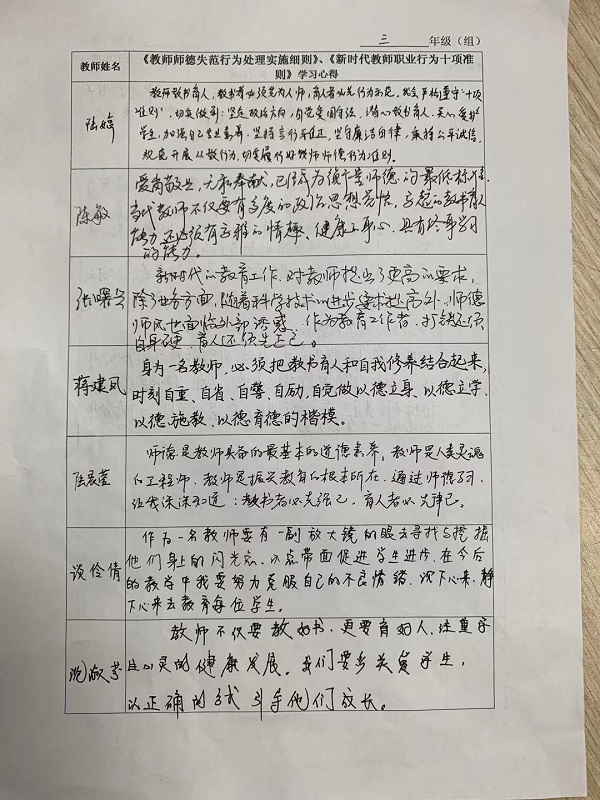 三 年级（组）
教师姓名
《教师师德失范行为处理实施细则》、《新时代教师职业行为十项准
则》学习心得
陆婷
教师教书育人，教书者必须先为人师，育人者必先行为示范。我会严格遵守“十项
准则”，切实做到：坚定政治方向，自觉爱国守法，潜心教书育人，关心爱护
学生，加强自己安全素养，坚持言行雅正，坚守廉洁自律，秉持公平诚信，
规范开展从教行为，切实履行好教师师德行为准则。
陈敏
爱岗敬业，无私奉献，已成为衡量师德的最低标准，
当代教师不仅要有高度的政治思想觉悟，
能力，还必须有高雅的情趣、健康的身心，具有终身学习
的能力。
张曙兰
新时代的教育工作，对教师提出了更高的要求，
除了业务方面，随着科学技术的进步要求提高外，师德
师风也面临外部诱惑，作为教育工作者，打铁还须
自身硬，育人还须先正己。
蒋建凤
身为一名教师，必须把教书育人和自我修养结合起来，
时刻自重、自省、自警、自励，自觉做以德立身、以德立学、
以德施教、以德育德的楷模。
陆晨莹
师德是教师具备的最基本的道德素养，教师是人类灵魂
的工程师，教师是振兴教育的根本所在，通过师德学习，
让我深深知道：教书者必先强己，育人者必先律己。
谈伶倩
作为一名教师要有一副放大镜的眼去寻找与挖掘
他们身上的闪光点，以点带面促进学生进步。在今后
的教学中我要努力克服自己的不良情绪，沉下心来，静
下心来去教育每位学生。
沈淑芬
教师不仅要教好书，更要育好人，注重学
生心灵的健康发展。我们要多关爱学生，
以正确的方式引导他们成长。